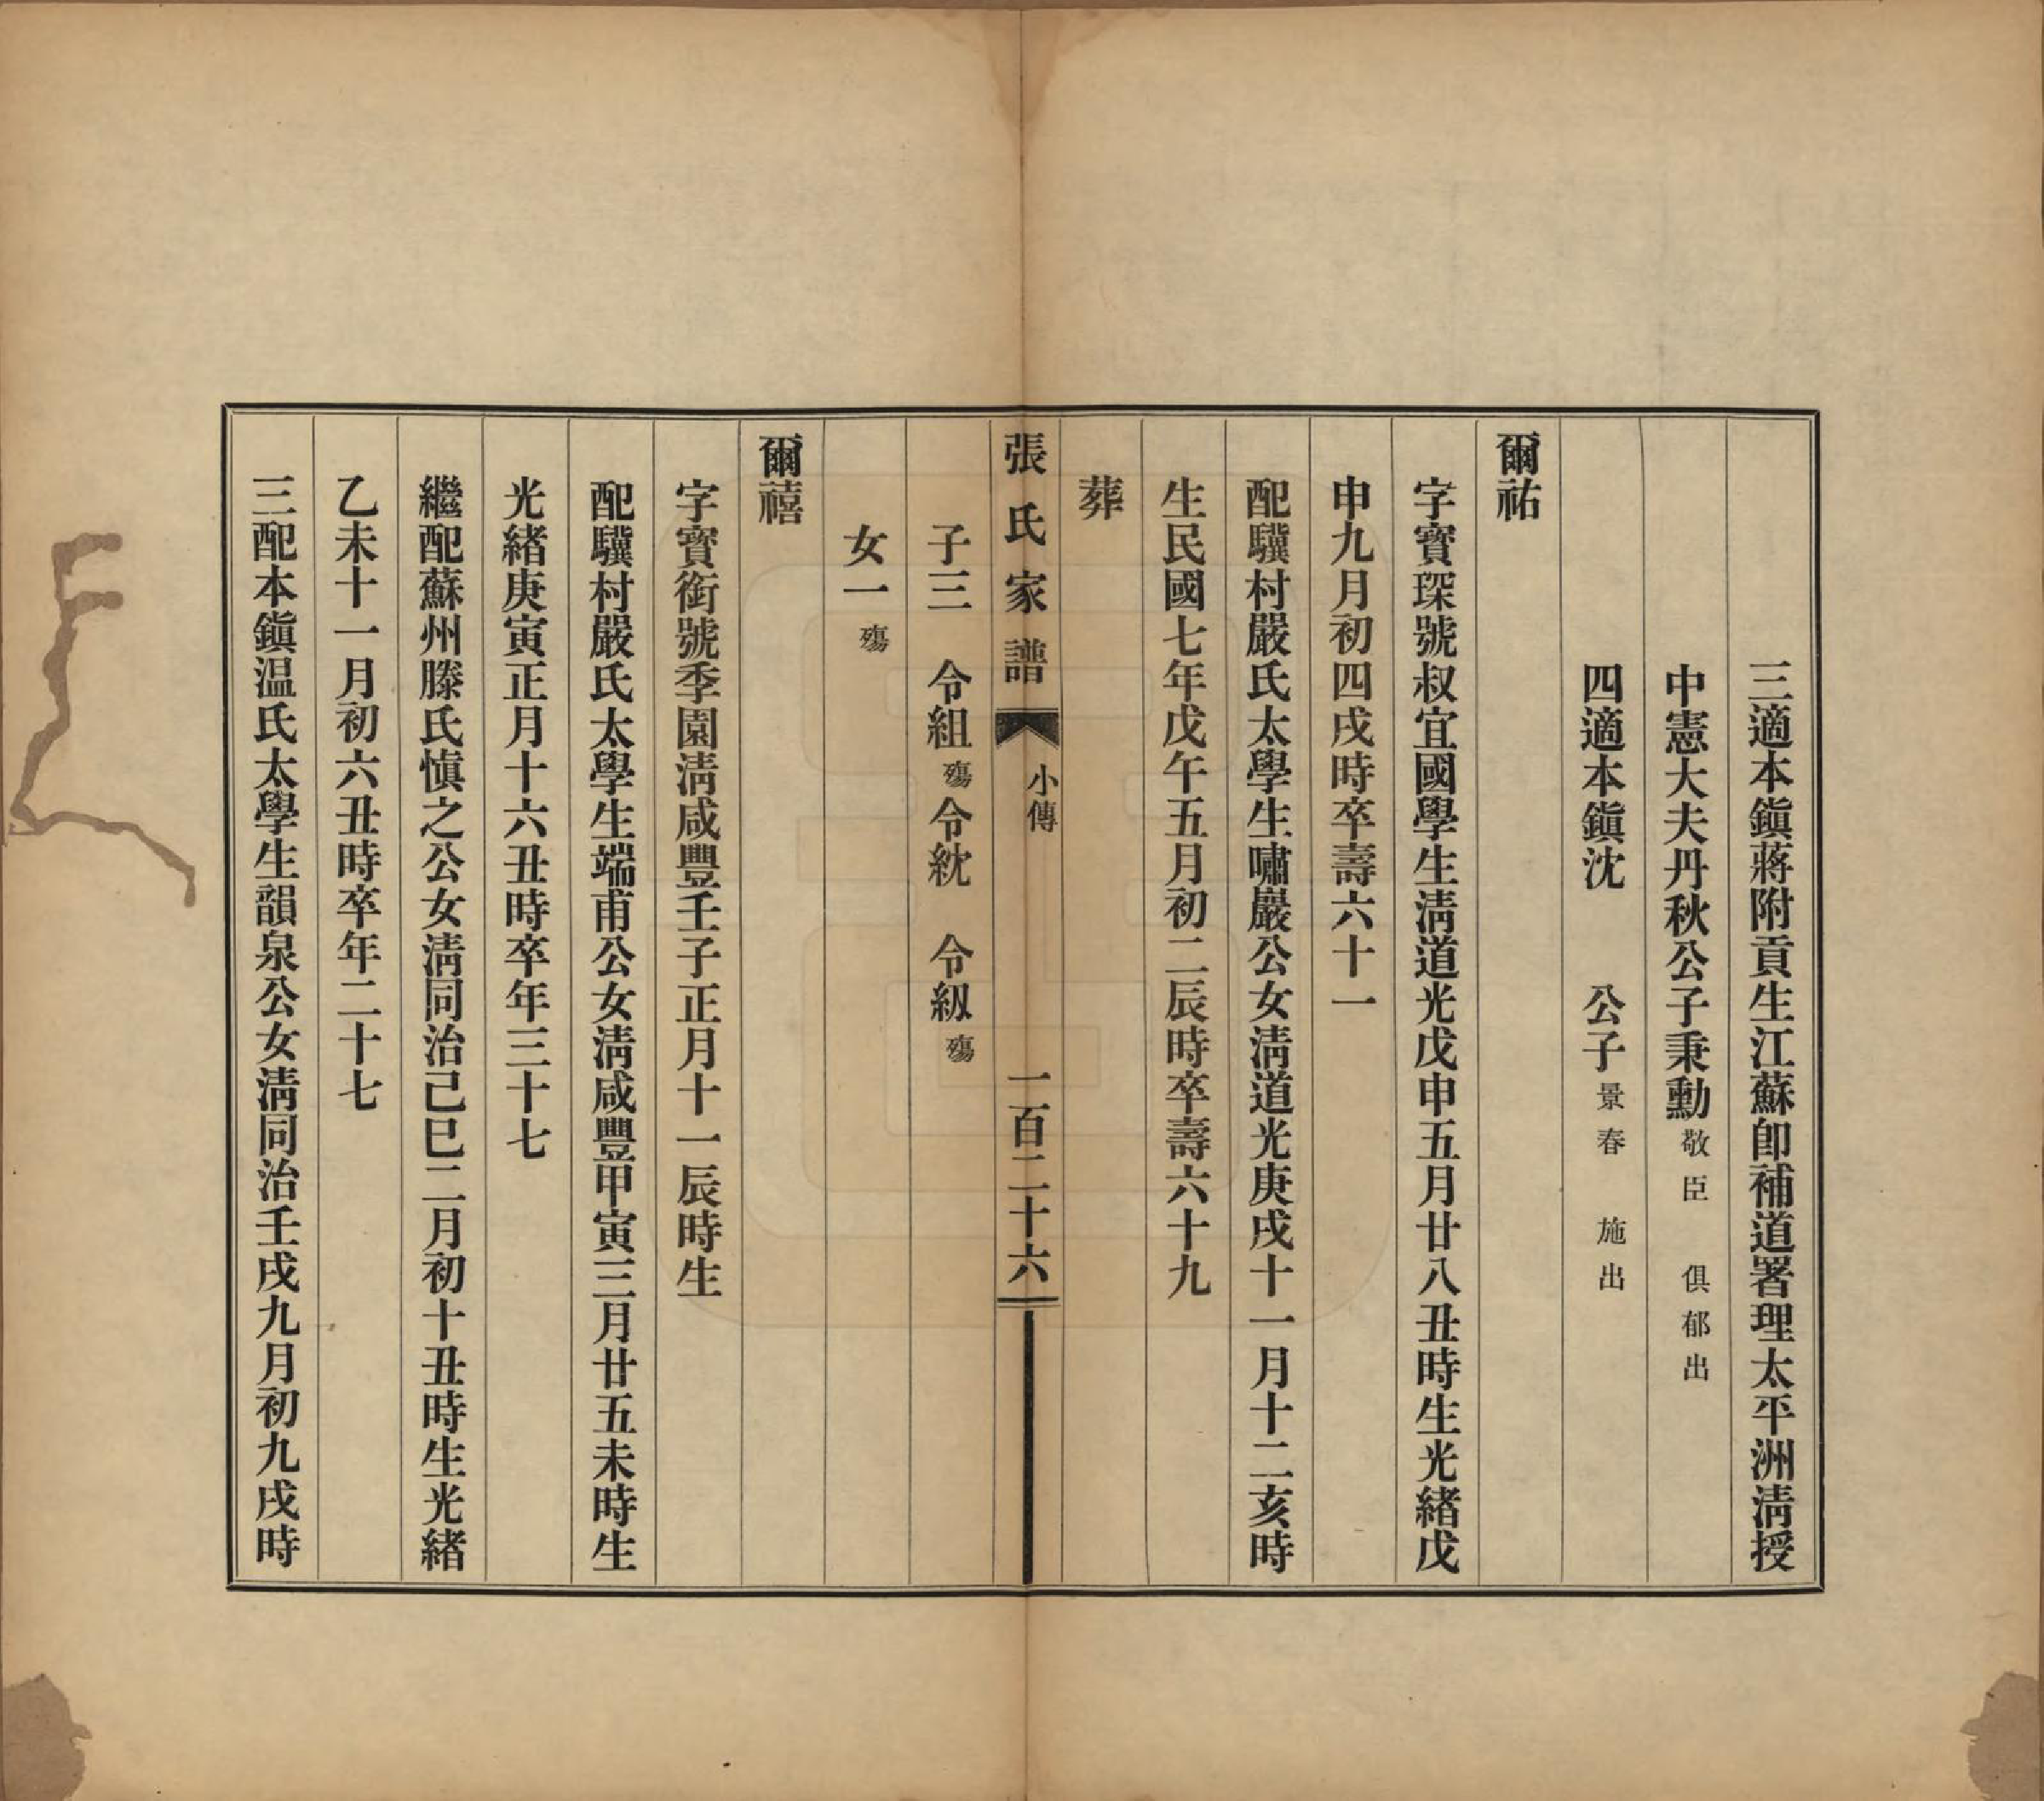 三適本鎭蔣附貢生江蘇卽補道署理太平洲淸授
中憲大夫丹秋公子秉勳敬臣　俱郁出
四適本鎭沈　　公子景春　施出
爾祐
字寶琛號叔宜國學生淸道光戊申五月廿八丑時生光緒戊
申九月初四戌時卒壽六十一
配驥村嚴氏太學生嘯巖公女淸道光庚戌十一月十二亥時
生民國七年戊午五月初二辰時卒壽六十九
葬
張氏家譜　小傳　一百二十六
子三　令組殤令紞　令級殤
女一殤
爾禧
字寶銜號季園淸咸豐壬子正月十一辰時生
配驥村嚴氏太學生端甫公女淸咸豐甲寅三月廿五未時生
光緒庚寅正月十六丑時卒年三十七
繼配蘇州滕氏愼之公女淸同治己巳二月初十丑時生光緒
乙未十一月初六丑時卒年二十七
三配本鎭温氏太學生韻泉公女淸同治壬戌九月初九戌時